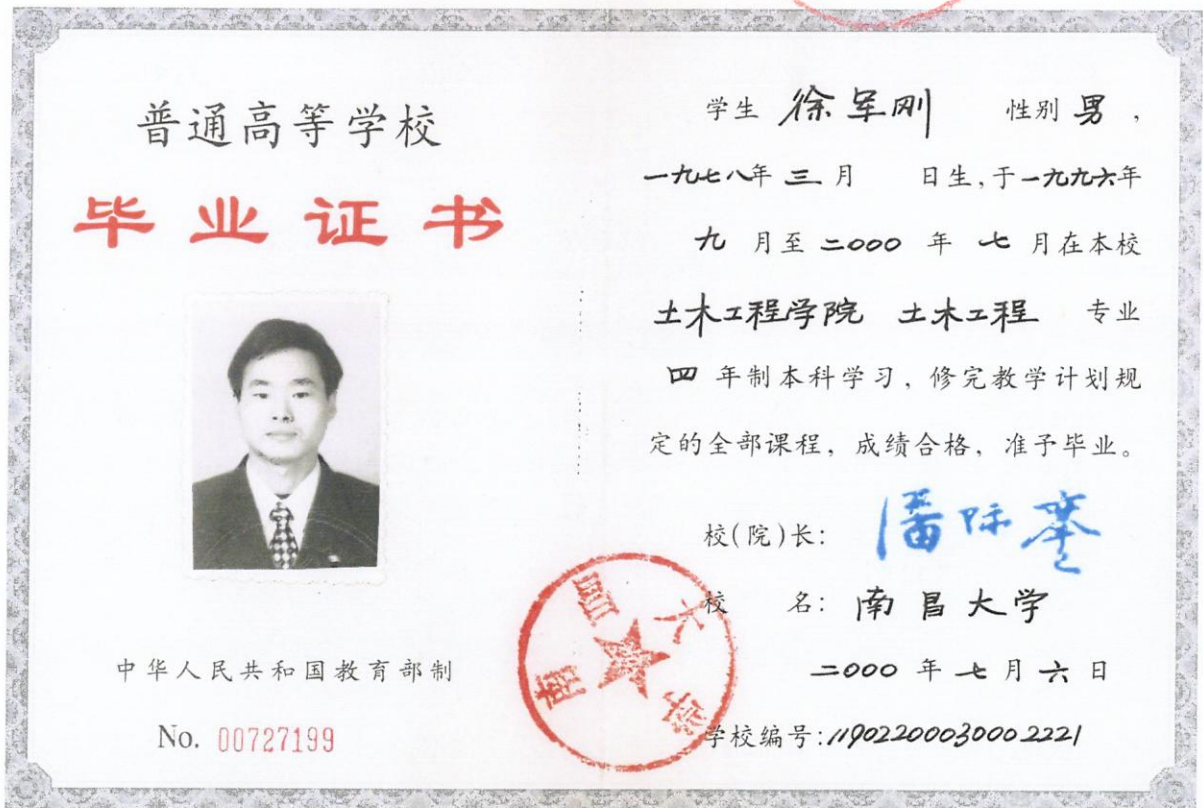 普通高等学校
毕业证书
中华人民共和国教育部制
No. 00727199
学生 徐军刚 性别 男，
一九七八年 三 月 日生，于一九九六年
九 月至 二000 年 七 月在本校
土木工程学院 土木工程 专业
四 年制本科学习，修完教学计划规
定的全部课程，成绩合格，准予毕业。
校(院)长： 潘际銮
校 名： 南昌大学
二000 年 七 月 六 日
学校编号：11902200030002221
南昌大学